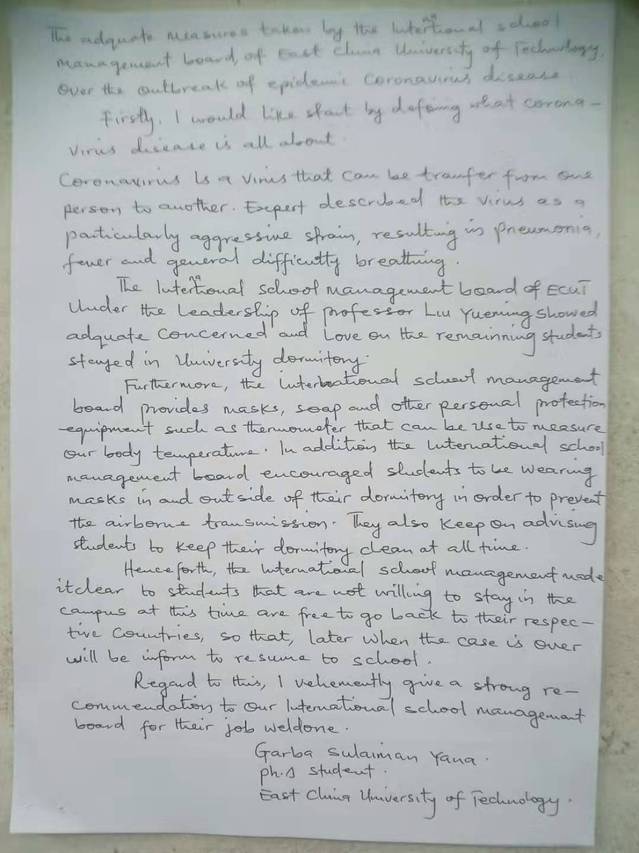 The adquate measures taken by the International school
management board, of East China University of Technology,
over the outbreak of epidemic Coronavirus disease.
Firstly, I would like start by defoing what corona-
virus disease is all about.
Coronavirus Is a virus that can be tranfer from one
person to another. Expert described the virus as a
particularly aggressive strain, resulting in pneumonia,
fever and general difficutty breathing.
The International school management board of ECUT
Under the Leadership of professor Liu Yuening showed
adquate concerned and Love on the remainning students
stayed in University dormitory.
Furthermore, the international school management
board provides masks, soap and other personal protection
equipment such as thermometer that can be use to measure
our body temperature. In addition the International school
management board encouraged students to be wearing
masks in and outside of their dormitory in order to prevent
the airborne transmission. They also keep on advising
students to keep their dormitory clean at all time.
Henceforth, the International school management made
it clear to students that are not willing to stay in the
campus at this time are free to go back to their respec-
tive Countries, so that, later when the case is over
will be inform to resume to school.
Regard to this, I vehemently give a strong re-
commendation to our International school management
board for their job weldone.
Garba Sulaiman Yana.
ph.d student.
East China University of Technology.